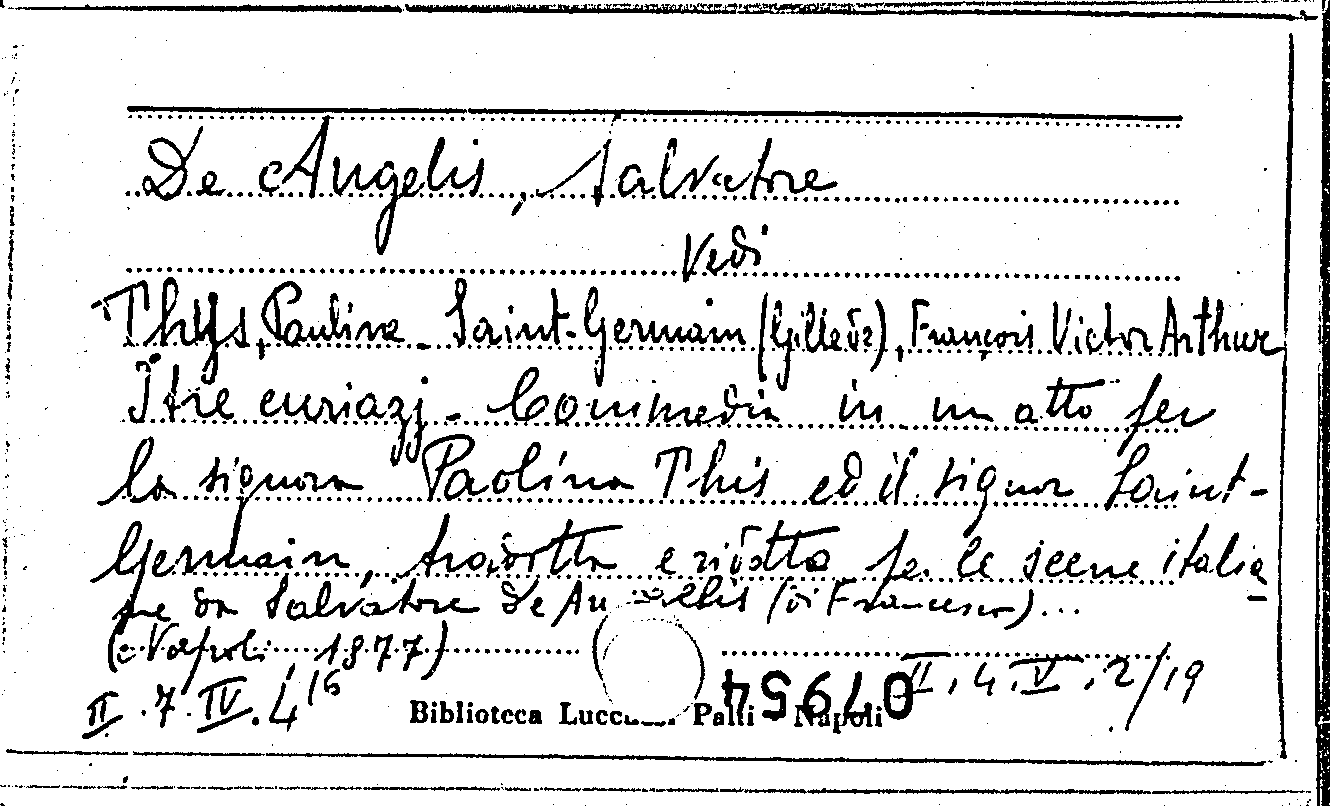 De Angelis, Salvatore
Vedi
Thys, Pauline - Saint-Germain (Gilleès), François Victor Arthur
I tre curiazj - Commedia in un atto per
la signora Paolina This ed il signor Saint-
Germain, tradotta e ridotta per le scene italia
ne da Salvatore de Angelis (di Francesco)...
(Napoli, 1877)
II.7.IV.4 16
II.4.V.2/19
Biblioteca Lucchesi Palli - Napoli
07954